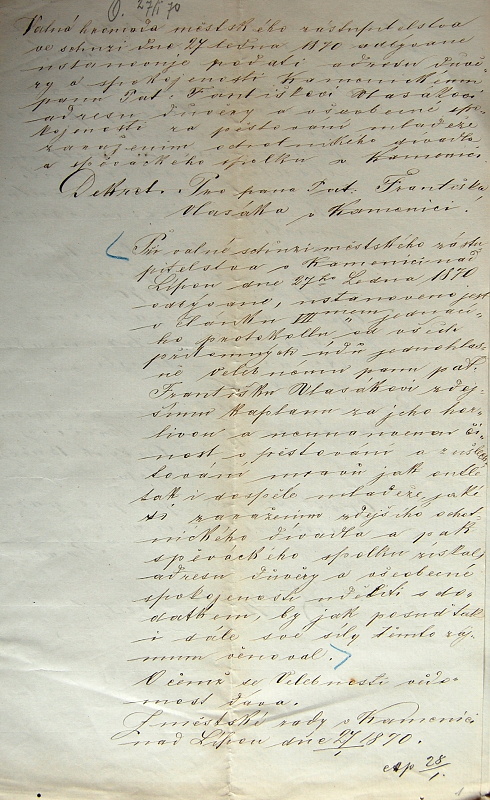 O. 27/1 70
Valná hromada městského zastupitelstva
ve schůzi dne 27 ledna 1870 odbývané
ustanovuje podati adresu důvě-
ry a spokojenosti Kamenickému
panu Pat. Františkovi Vlasákovi
adresu důvěry a všeobecné spo-
kojenosti za pěstování mládeže
zaražením ochotnického divadla
a spěváckého spolku v Kamenici
Dekret. Pro pana Pat. Františka
Vlasáka v Kamenici.
Při valné schůzi městského zastu-
pitelstva v Kamenici nad
Lípou dne 27ho Ledna 1870
odbývané, ustanoveno jest
v článku VIII mem jednací-
ho protokollu od všech
přítomných údů jednohlas-
ně velebnému panu pat.
Františku Vlasákovi zdej-
šímu kaplanu za jeho hor-
livou a neunavenou či-
nost v pěstování a zušlech-
ťování mravů jak outlé
tak i dospělé mládeže, jako
též zaražením zdejšího ochot-
nického divadla a pak
spěváckého spolku získal,
adresu důvěry a všeobecné
spokojenosti uděliti s do-
datkem, by jak posud tak
i dále své síly těmto záj-
mum věnoval.
O čemž se Velebnosti vědo-
most dává.
Z městské rady v Kamenici
nad Lípou dne 27/1 1870.
exp 28/1.